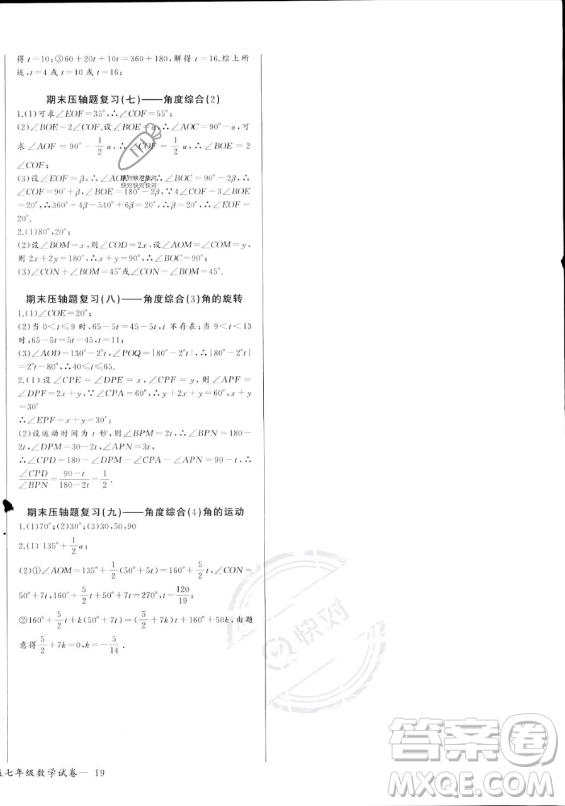 得 t=10;③60+20t=360+180,解得 t=16.综上所
述,t=4 或 t=10 或 t=16;
期末压轴题复习(七)——角度综合(2)
1.(1)可求∠EOF=35°,∴∠COF=55°;
(2)∠BOE=2∠COF.设∠BOE=α,∴∠AOC=90°-α,可
求∠AOF=90°-1/2α,∴∠COF=1/2α,∴∠BOE=2
∠COF;
(3)设∠EOF=β,∴∠AOF=
∠COF=90°+β,∠BOE=180°-2β,∵4∠COF-3∠BOE
=720°,∴360+4β-540°+6β=720°,∴∠EOF=β=90°.
2.(1)80°;
(2)设∠BOM=x,则∠COD=2x,设∠AOM=∠COM=y,
2x+2y=180°,∴x+y=90°,∴∠BOC=90°;
(3)∠BOM=∠CON=45°或∠CON-∠BOM=45°.
期末压轴题复习(八)——角度综合(3)角的旋转
1.(1)∠COE=20°;
(2)当 0<t≤9 时,65-5t=45-5t,t 不存在;当 9<t<13
时,65-5t=5t-45,t=11;
(3)∠AOD=130°-2°t,∠POQ=|80°-2°t|,|80°-2°t|
=|2°t-65°|,∴40≤t≤65.
2.(1)设∠CPE=∠DPE=x,∠CPF=y,则∠APF=
∠DPF=2x+y,∵∠CPA=60°,∴y+2x+y=60°,∴x+y
=30°
∴∠EPF=x+y=30°
(2)设运动时间为 t 秒,则∠BPM=2t,∴∠BPN=180-
2t,∠DPM=30-2t,∠APN=3t.
∴∠CPD=180-∠DPM-∠CPA-∠APN=90-t,∴
∠CPD/∠BPN=(90-t)/(180-2t)=1/2.
期末压轴题复习(九)——角度综合(4)角的运动
1.(1)70°;(2)30°;(3)30,50,90
2.(1)135°+1/2α;
(2)①∠AOM=135°+1/2(50°+5t)=160°+5/2t,∠CON=
50°+7t,160°+5/2t+50°+7t=270°,t=120/19;
②160°+5/2t+k(50°+7t)=(5/2+7k)t+160°+50k,由题
意得5/2+7k=0,k=-5/14.
七年级数学试卷— 19
快对快对快对
快对
答案圈
MXQE.COM